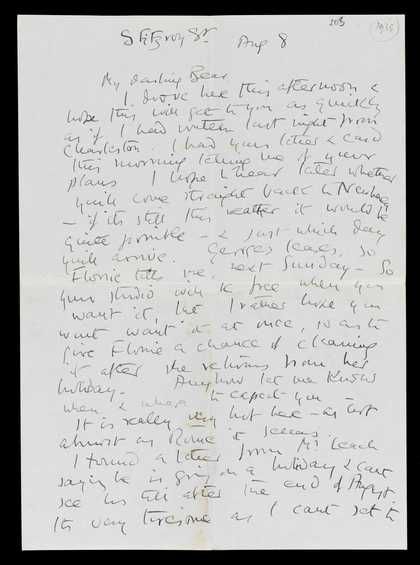 8 Fitzroy St. Aug 8
My darling Bear
I drove here this afternoon &
hope this will get to you as quickly
as if I had written last night from
Charleston. I had your letter & card
this morning telling me of your
plans. I hope to hear later whether
you'll come straight back to Newhaven
– if its still this weather it would be
quite possible – & just which day
you'll arrive. Georges leaves, so
Flossie tells me, next Sunday – So
your studio will be free when you
want it, but I rather hope you
wont want it at once, so as to
give Flossie a chance of cleaning
it after she returns from her
holiday – Anyhow let me know
when & where to expect you –
It is really very hot here – as hot
almost as Rome it seems.
I found a letter from Mr Leach
saying he is going on a holiday & cant
see us till after the end of August
Its very tiresome as I cant get it